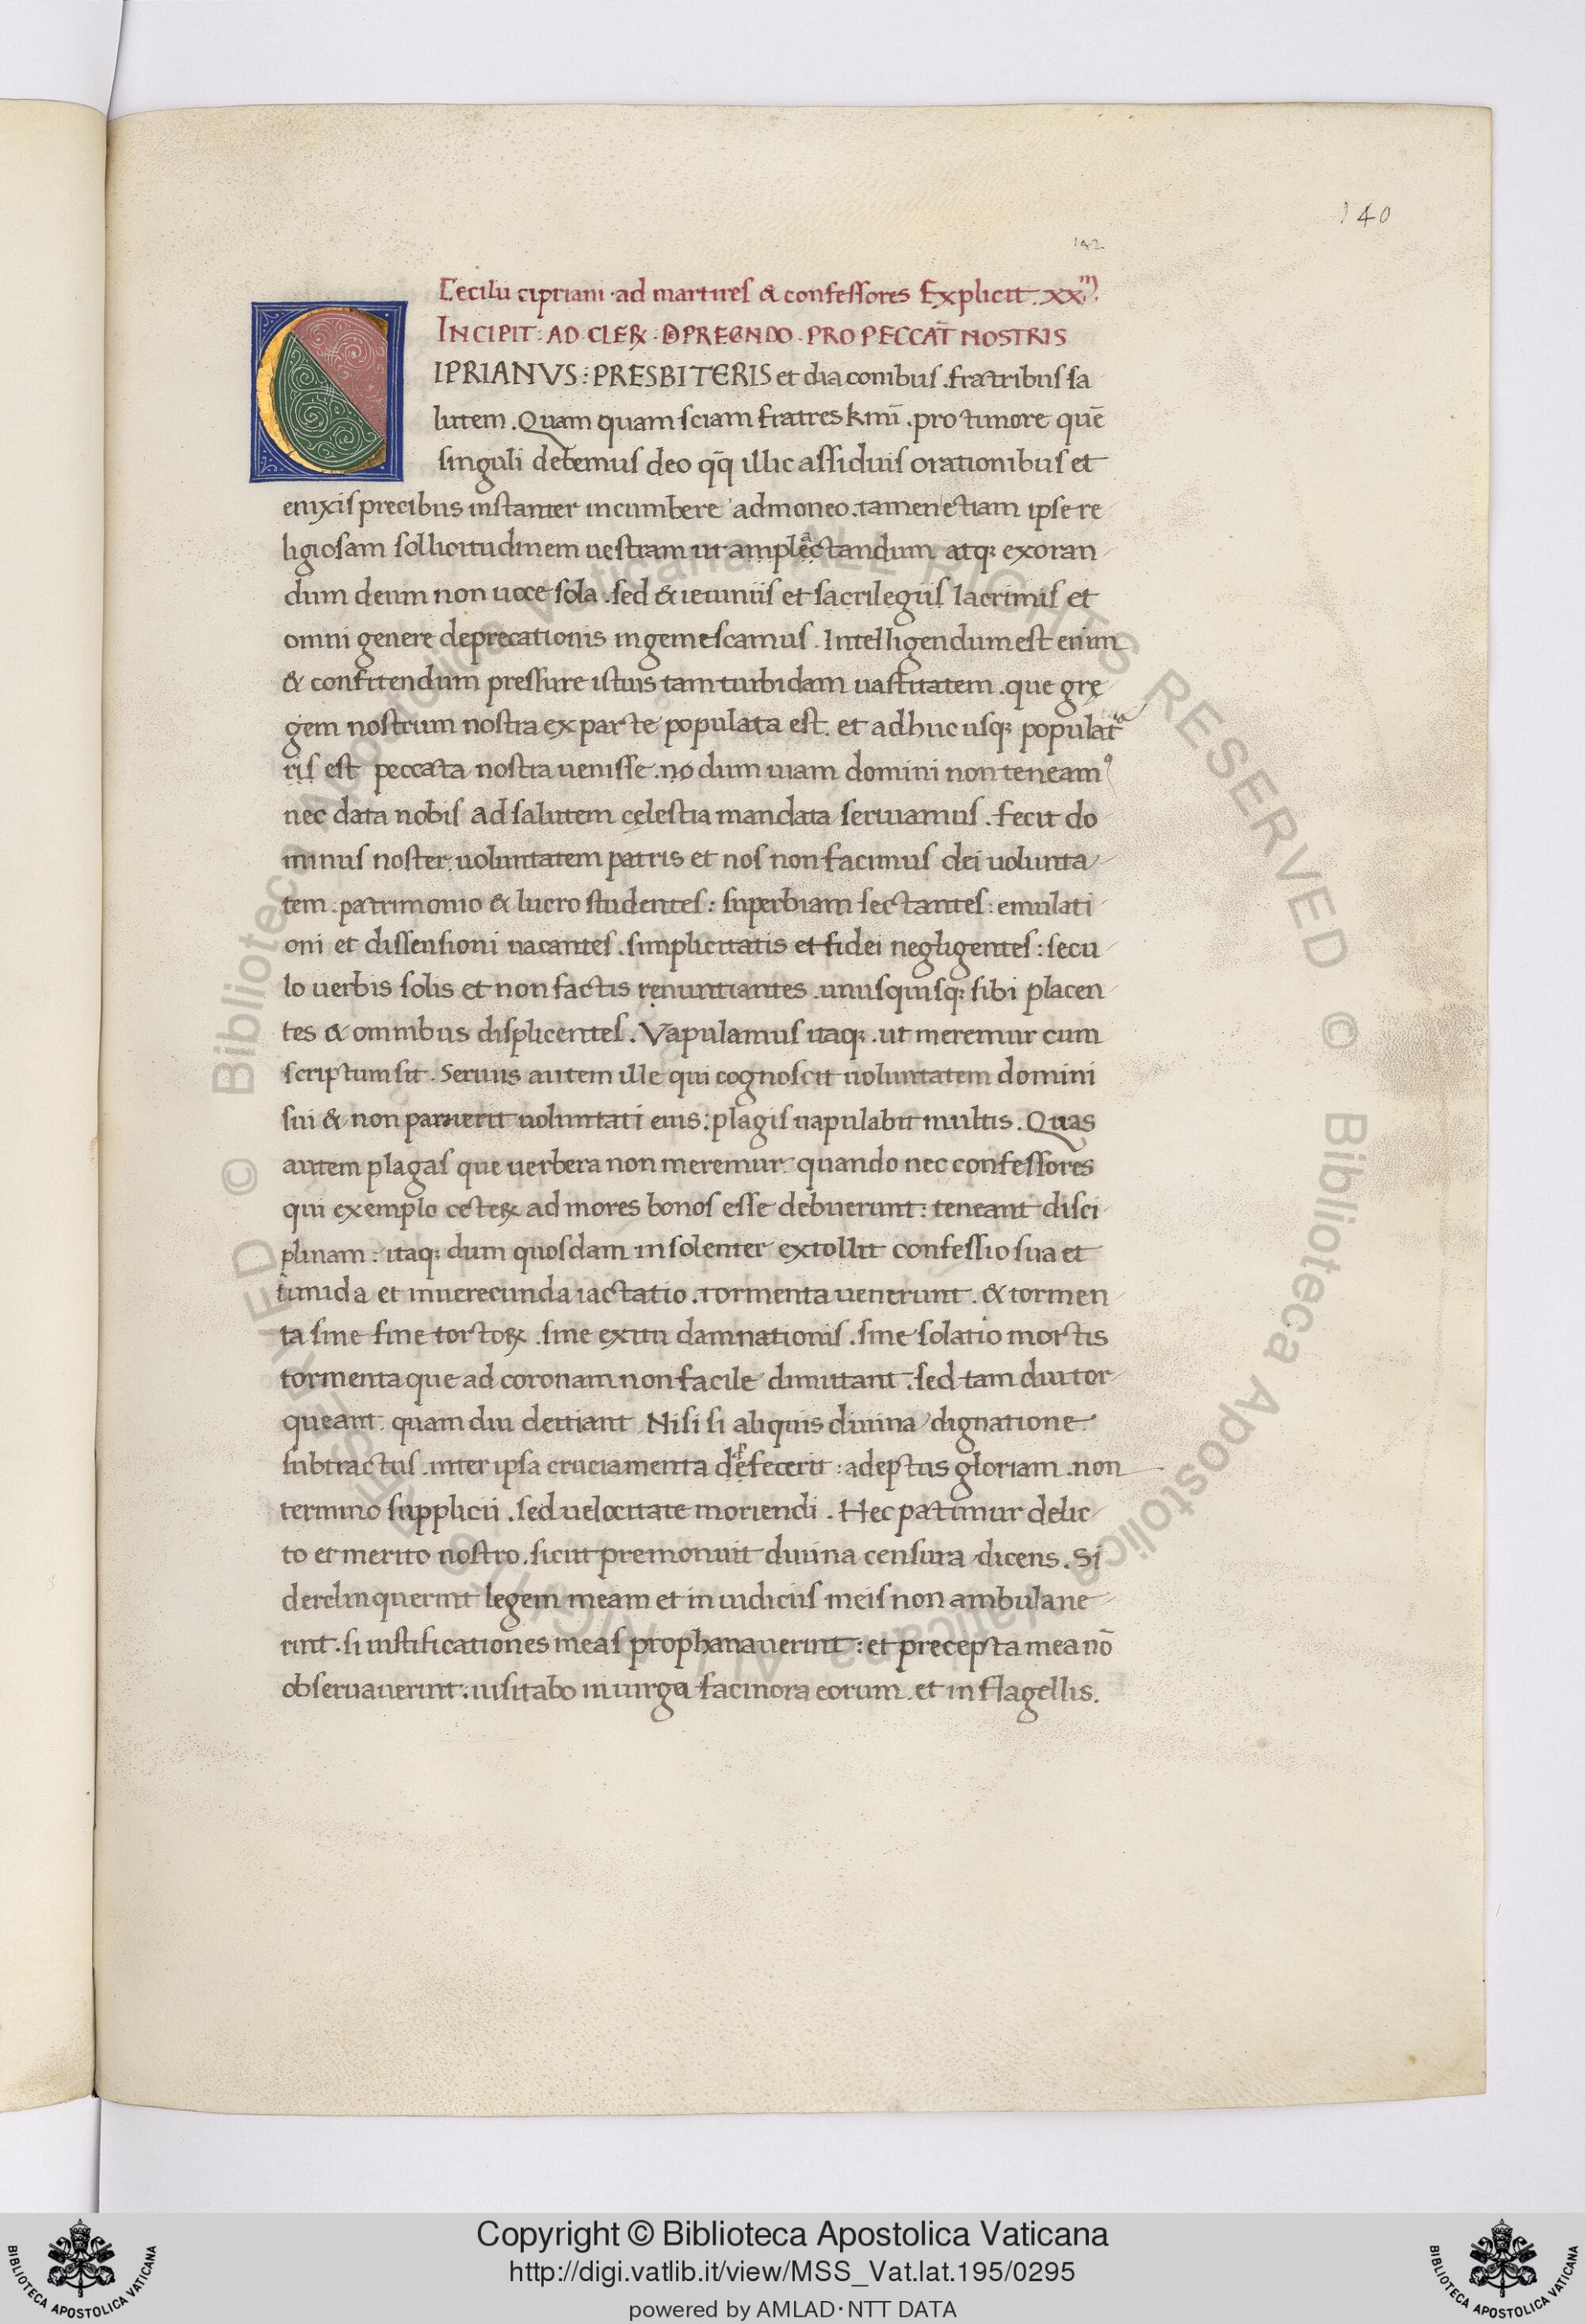 140
142
Cecilii cipriani · ad martires & confessores Explicit . xx.m
INCIPIT : AD · CLERꝜ · DPREGNDO · PRO PECCAT̄ NOSTRIS
CIPRIANVS : PRESBITERIS et diaconibus . fratribus sa
lutem . Quam quam sciam fratres kmī . pro timore quē
singuli debemus deo qq̄ illic assiduis orationibus et
enixis precibus instanter incumbere admoneo . tamen etiam ipse re
ligiosam sollicitudinem uestram ut amplectandum atqꝫ exoran
dum deum non uoce sola . sed & ieiuniis et sacrilegiis lacrimis et
omni genere deprecationis ingemescamus . Intelligendum est enim
& confitendum pressure istius tam turbidam uastitatem . que gre
gem nostrum nostra ex parte populata est . et adhuc usqꝫ populat
ris est peccata nostra uenisse . no dum uiam domini non teneamꝰ
nec data nobis ad salutem cęlestia mandata seruamus . fecit do
minus noster uoluntatem patris et nos non facimus dei uolunta
tem . patrimonio & lucro studentes : superbiam sectantes : emulati
oni et dissensioni uacantes . simplicitatis et fidei negligentes : secu
lo uerbis solis et non factis renuntiantes . unusquisqꝫ sibi placen
tes & omnibus displicentes . Vapulamus itaqꝫ . ut meremur cum
scriptum sit . Seruus autem ille qui cognoscit uoluntatem domini
sui & non paruerit uoluntati eius : plagis uapulabit multis . Quas
autem plagas que uerbera non meremur quando nec confessores
qui exemplo ceteꝝ ad mores bonos esse debuerunt : teneant disci
plinam : itaqꝫ dum quosdam insolenter extollit confessio sua et
timida et inuerecunda iactatio . tormenta uenerunt . & tormen
ta sine fine tortoꝝ . sine exitu damnationis . sine solatio mortis
tormenta que ad coronam non facile dimittant . sed tam diu tor
queant quam diu deitiant Nisi si aliquis diuina dignatione
subtractus . inter ipsa cruciamenta defecerit : adeptus gloriam . non
termino supplicii . sed uelocitate moriendi . Hec patimur delic
to et merito nostro . sicut premonuit diuina censura dicens . Si
derelinquerint legem meam et in iudiciis meis non ambulaue
rint . si iustificationes meas prophanauerint : et precepta mea nō
obseruauerint : uisitabo in uirga facinora eorum . et in flagellis .
© Biblioteca Apostolica Vaticana ALL RIGHTS RESERVED © Biblioteca Apostolica Vaticana ALL RIGHTS RESERVED
Copyright © Biblioteca Apostolica Vaticana
http://digi.vatlib.it/view/MSS_Vat.lat.195/0295
powered by AMLAD · NTT DATA
BIBLIOTECA APOSTOLICA VATICANA
BIBLIOTECA APOSTOLICA VATICANA